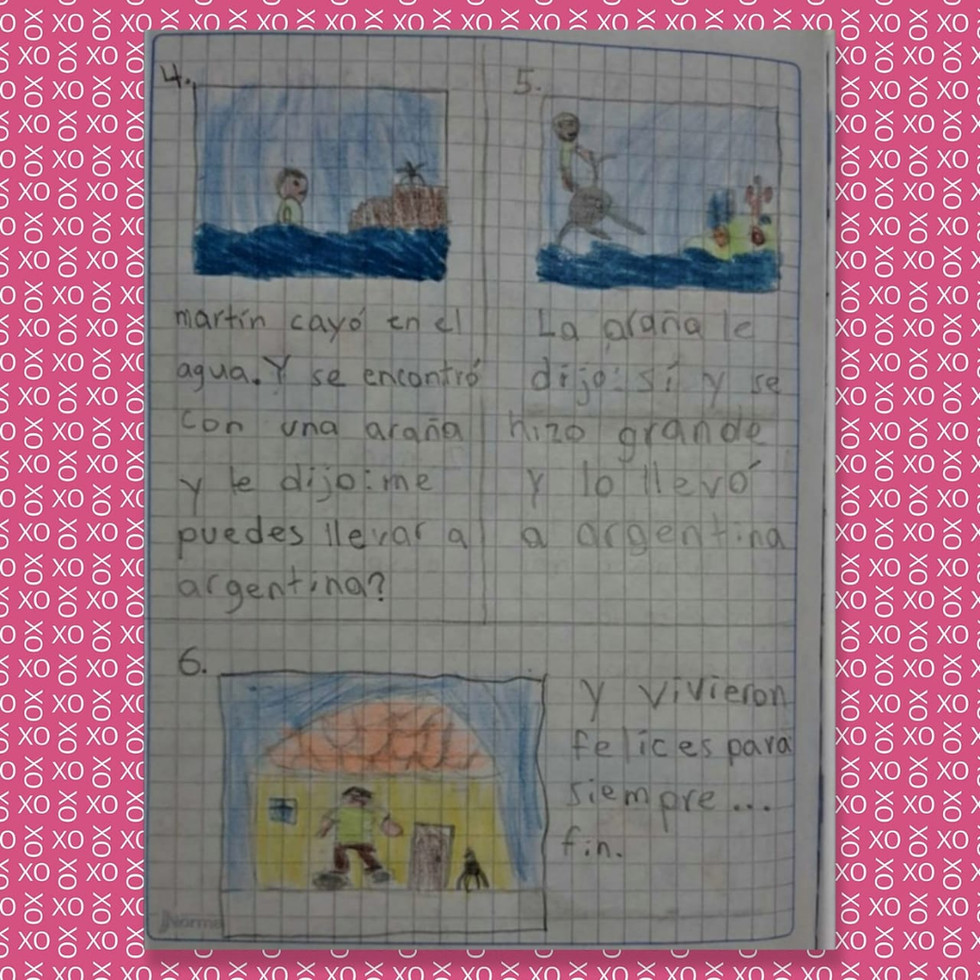 4.
martín cayó en el
agua. Y se encontró
con una araña
y le dijo: me
puedes llevar a
argentina?
5.
La araña le
dijo: sí y se
hizo grande
y lo llevó
a argentina
6.
y vivieron
felices para
siempre...
fin.
Norma